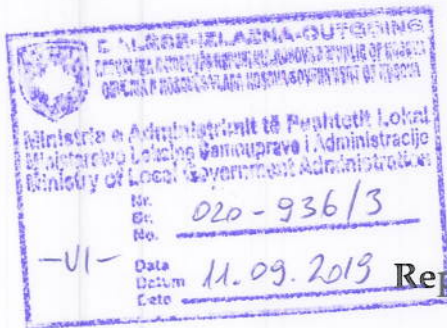 E DALSSE-IZLAZNA-OUTGOING
Ministria e Administrimit të Pushtetit Lokal
Ministarstvo Lokalne Samouprave i Administracije
Ministry of Local Government Administration
Nr.
Br. 020-936/3
No.
-VI-
Data
Datum 11.09.2019
Date
Rep